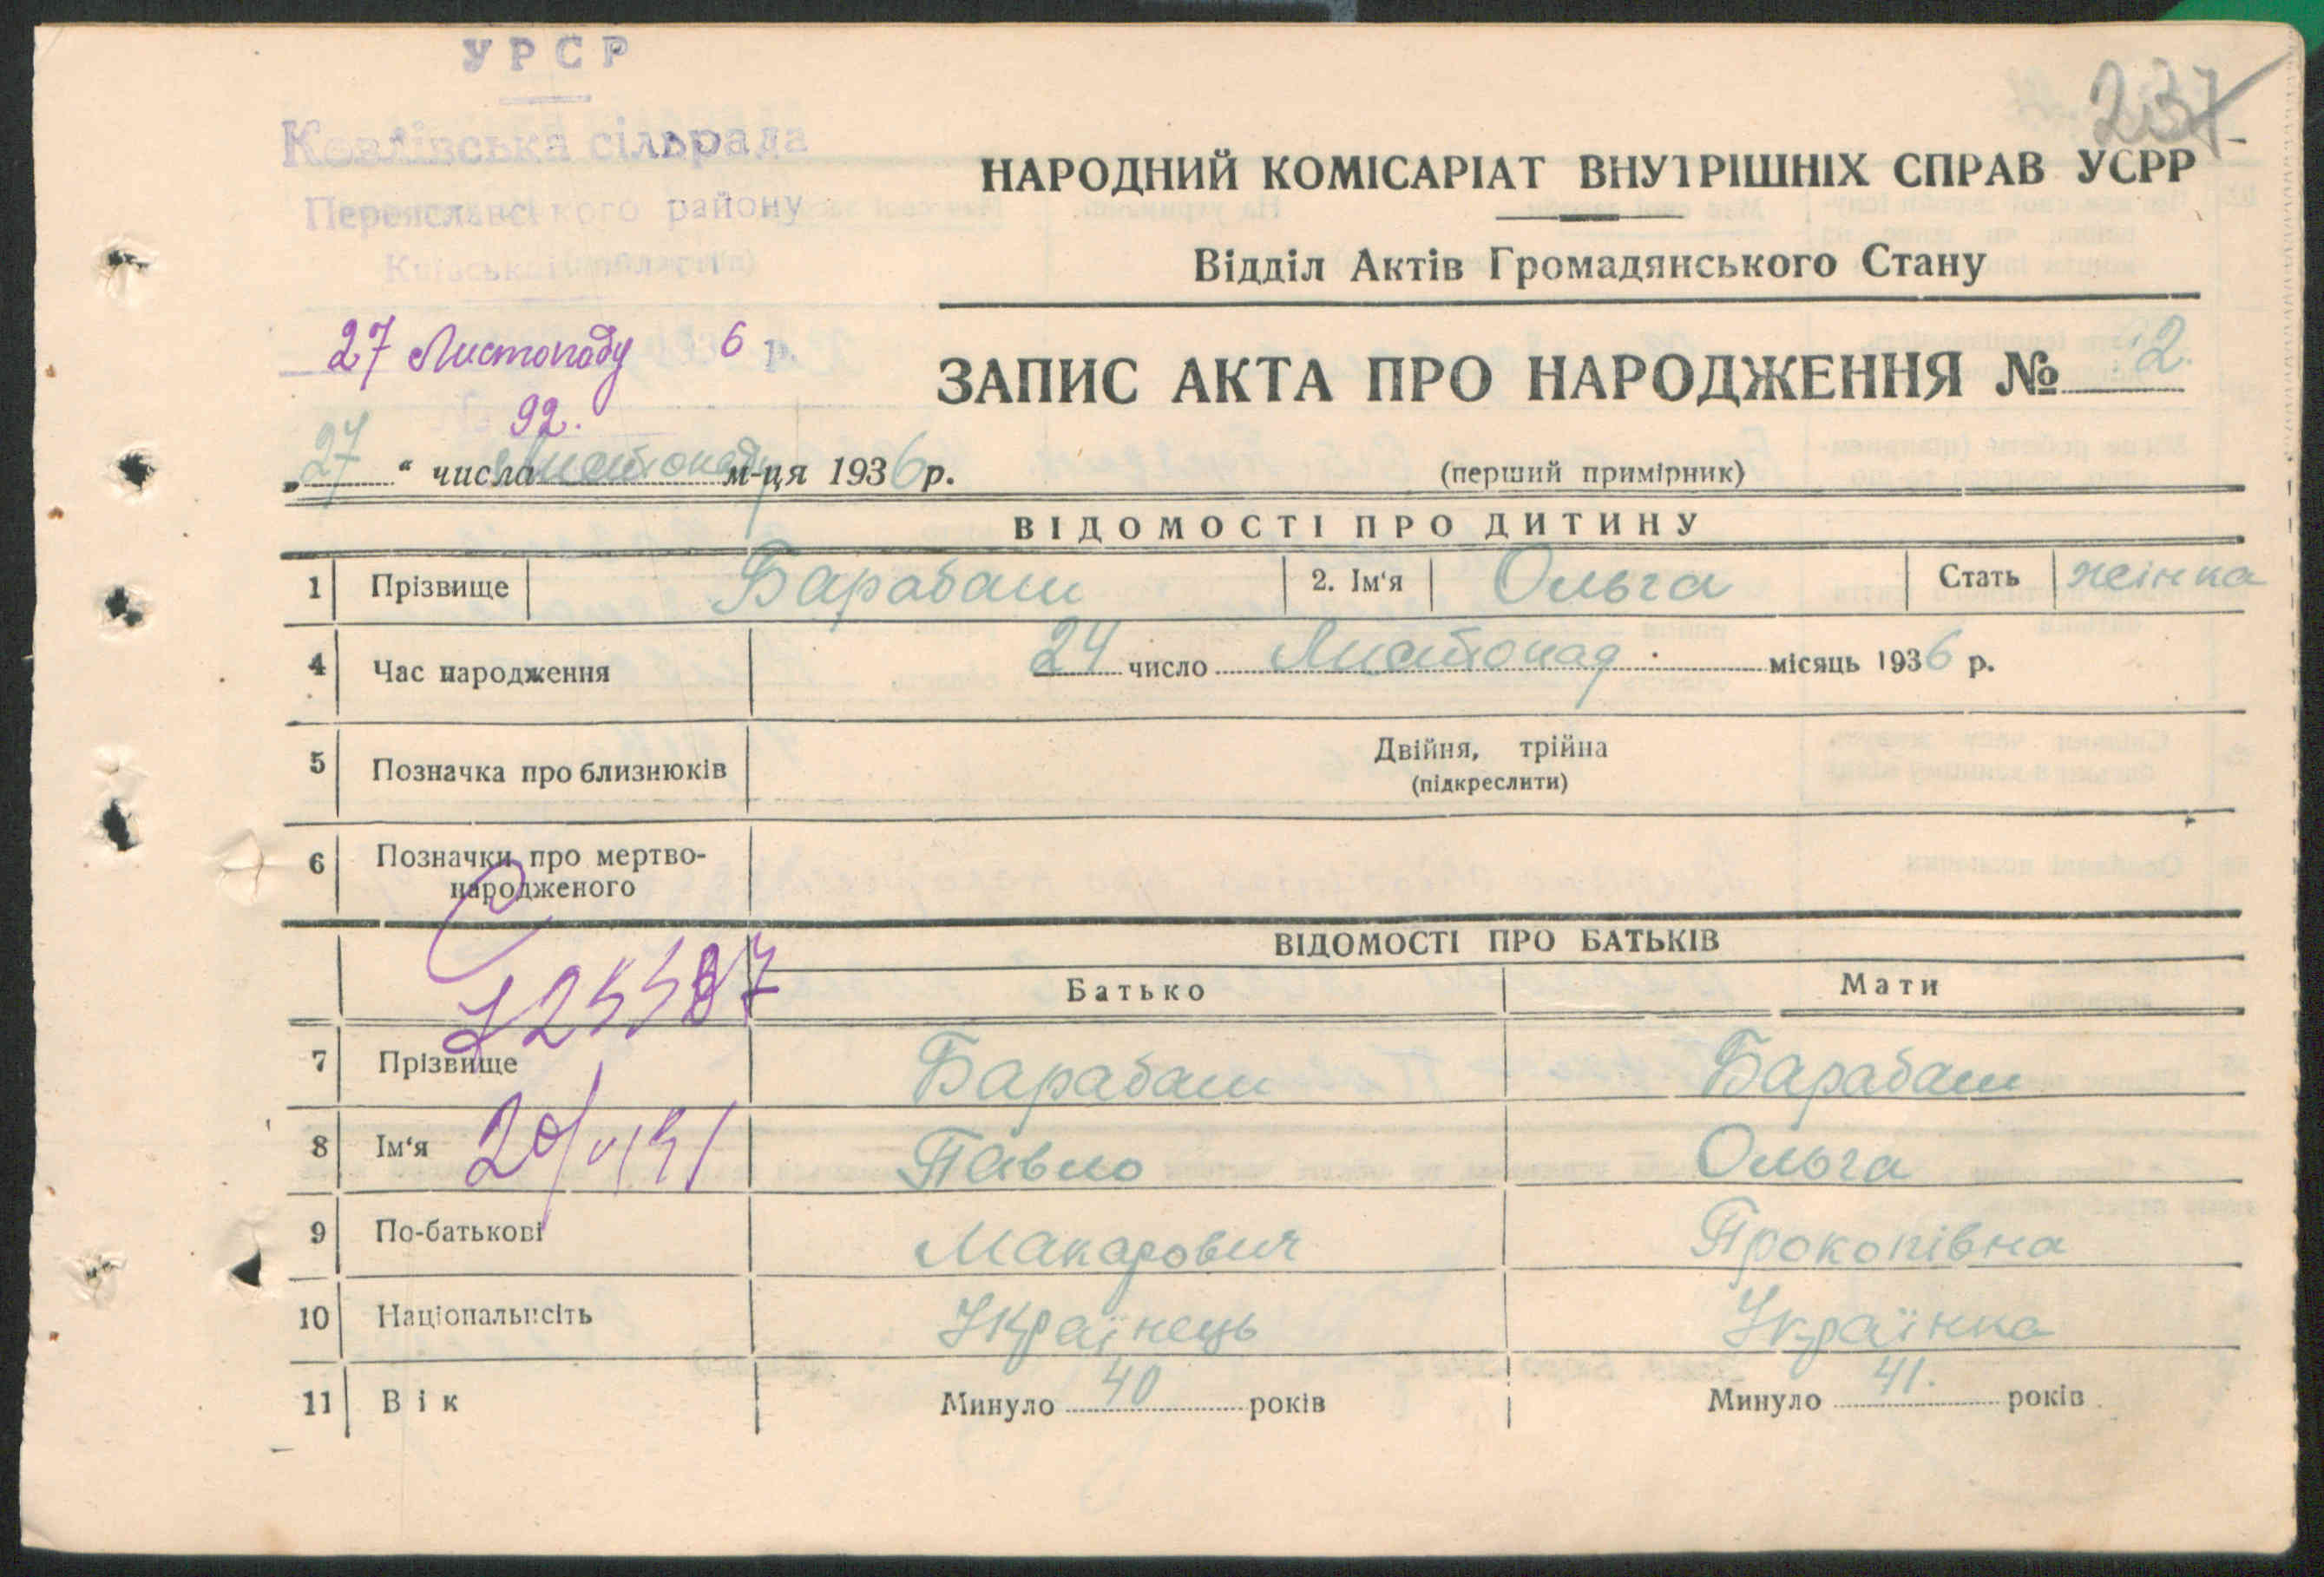 УРСР
Козлівська сільрада
Переяславського району
Київської області
237
27 Листопаду 6 р.
92.
НАРОДНИЙ КОМІСАРІАТ ВНУТРІШНІХ СПРАВ УСРР
Відділ Актів Громадянського Стану
ЗАПИС АКТА ПРО НАРОДЖЕННЯ № 92.
„27“ числа Листопаду м-ця 1936 р.
(перший примірник)
ВІДОМОСТІ ПРО ДИТИНУ
1 Прізвище Барабаш 2. Ім‘я Ольга Стать жінка
4 Час народження 24 число Листопад місяць 1936 р.
5 Позначка про близнюків Двійня, трійна
(підкреслити)
6 Позначки про мертво-
народженого
ВІДОМОСТІ ПРО БАТЬКІВ
Батько Мати
7 Прізвище Барабаш Барабаш
8 Ім‘я Павло Ольга
9 По-батькові Макарович Прокопівна
10 Національнсіть Українець Українка
11 Вік Минуло 40 років Минуло 41. років